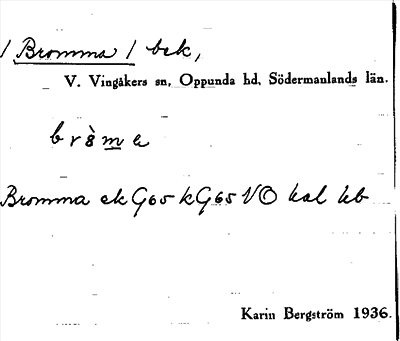 / Bromma / bek,
V. Vingåkers sn, Oppunda hd, Södermanlands län.
bròma
Bromma ek G65 kG65 VO hal hb
Karin Bergström 1936.